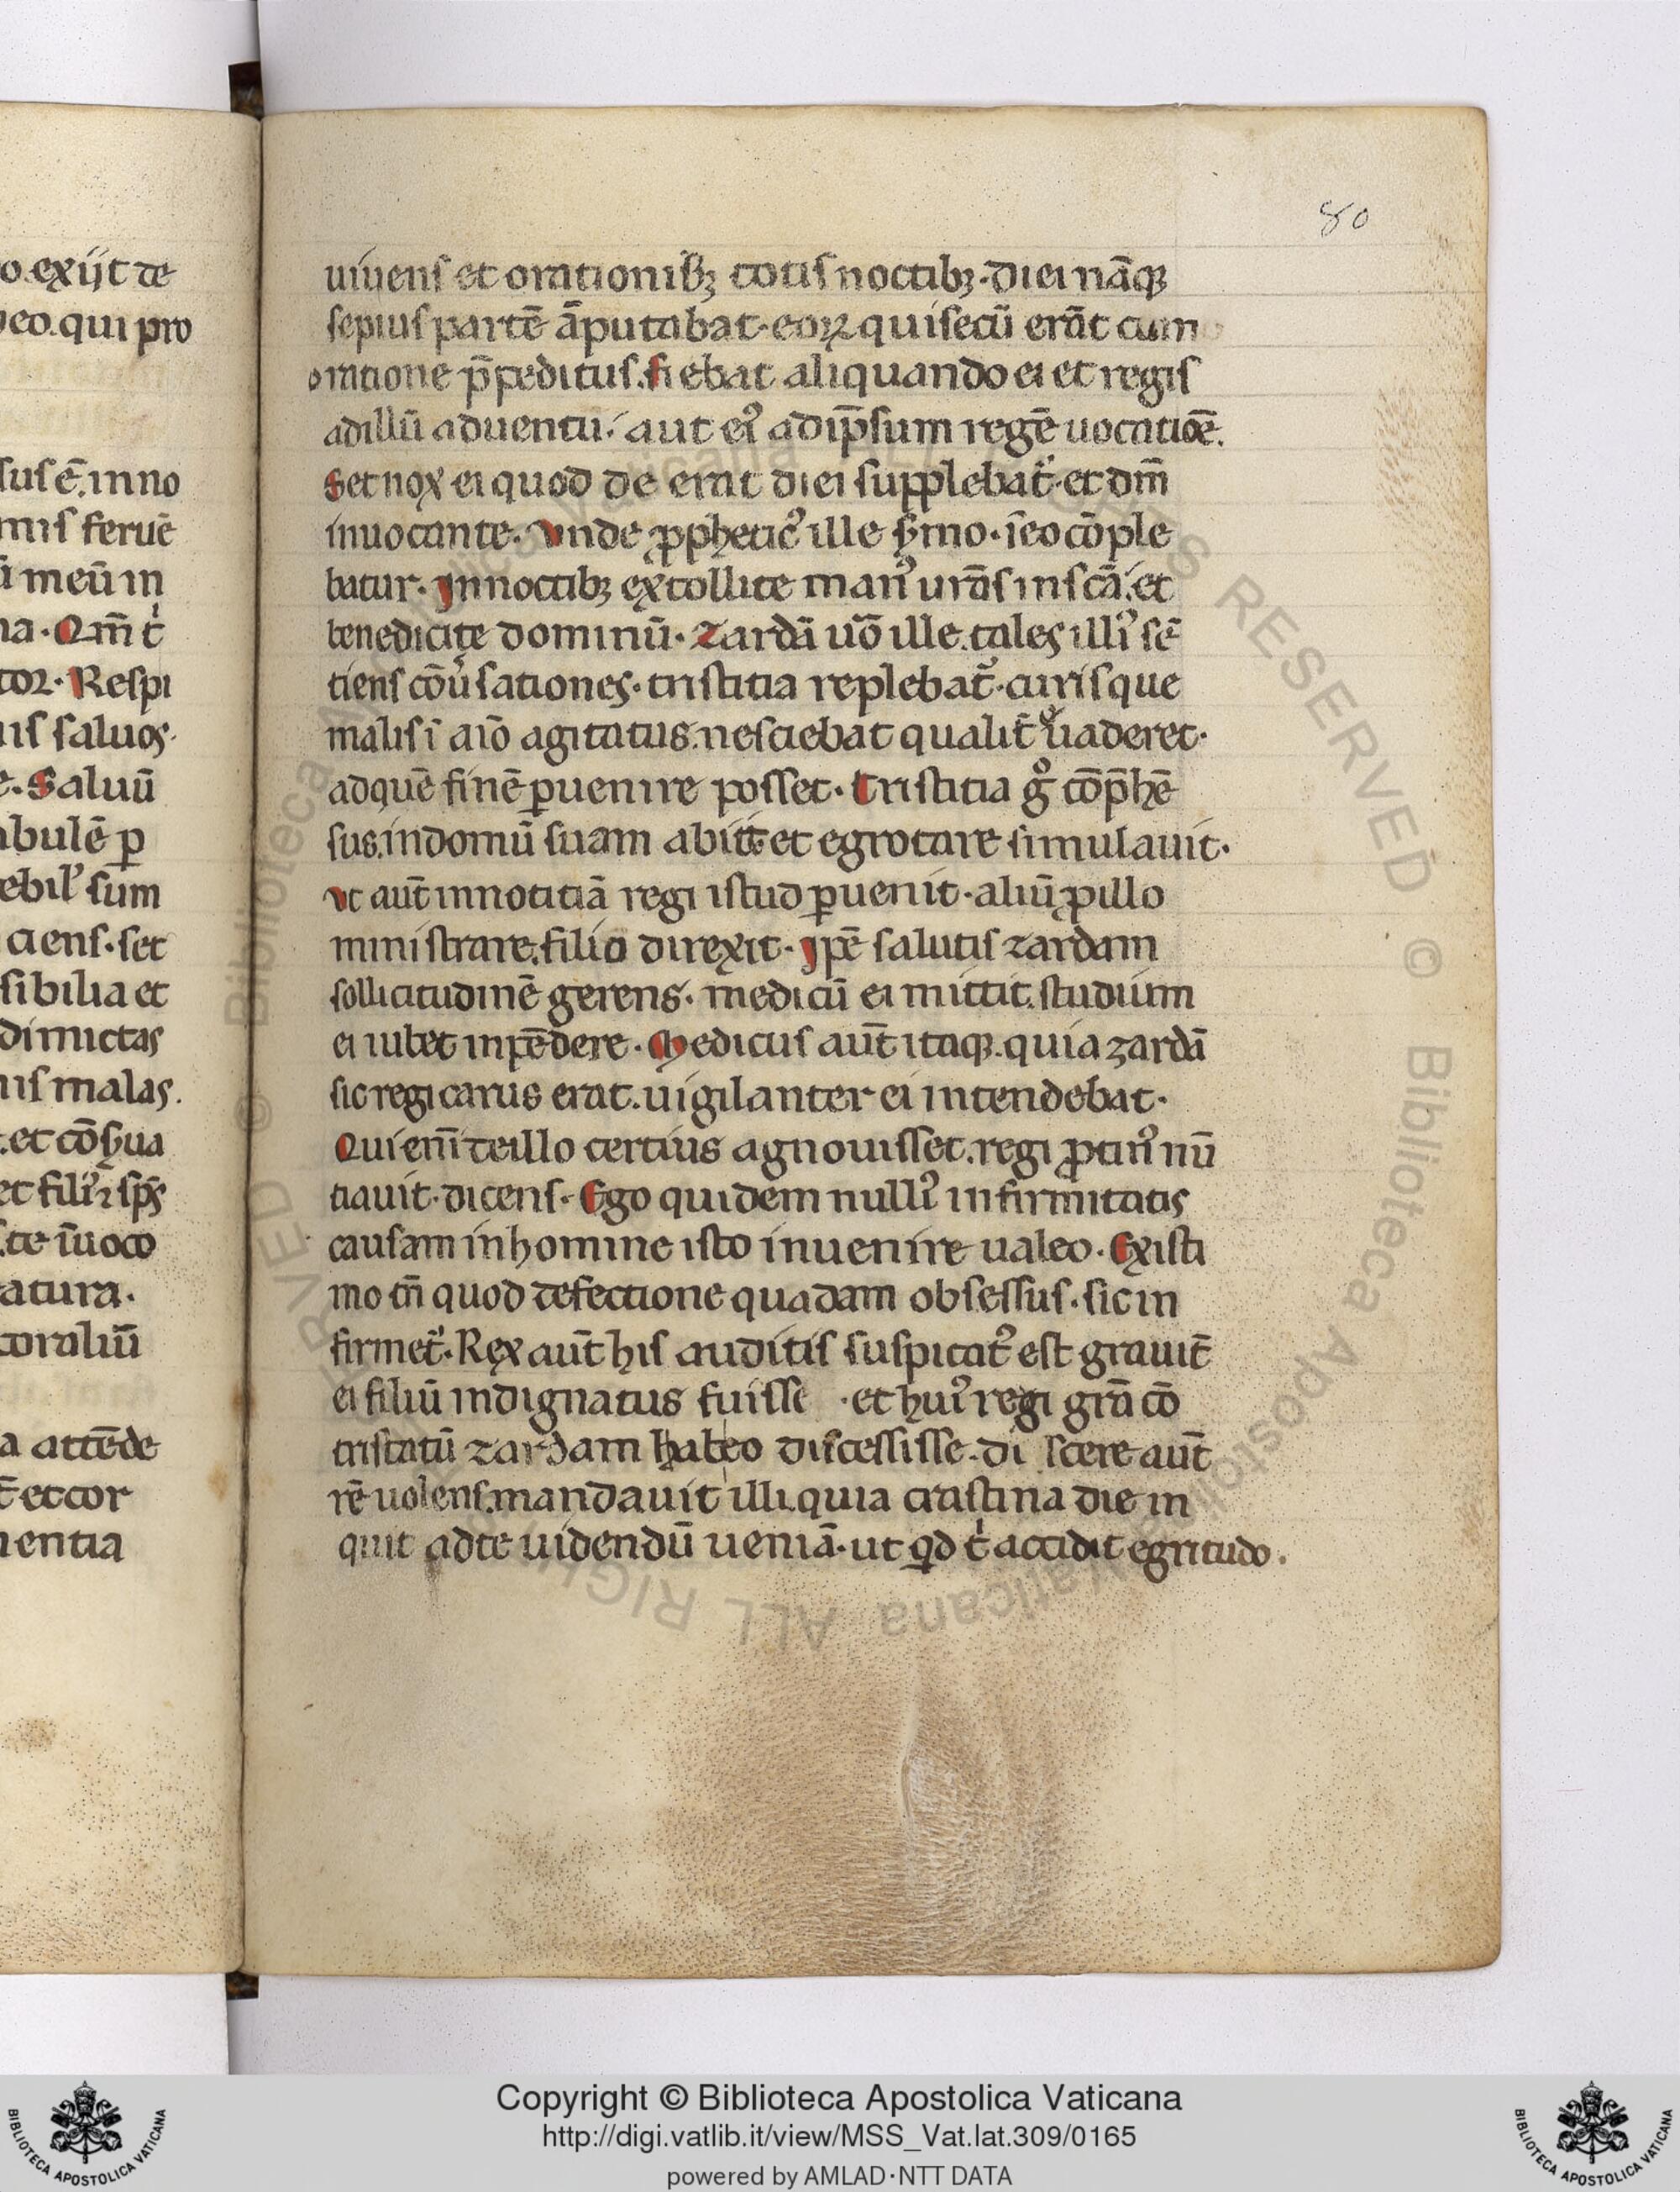 80
o.exijt de
deo.qui pro
sus ē.inno
mis feruē
ū meū in
na.Qm̄ t̉
tor.Respi
uis saluos.
e.Saluū
abulē ꝑ
ebilꝰ sum
ciens.set
sibilia et
dimictas
uis malas.
.et cōẜua
et filiꝰ⁊ sp̄s
.te īuoco
atura.
toraliū
a attēde
t̄ et cor
mentia
uiuens et orationibꝫ totis noctibꝫ.diei nāqꝫ
sepius partē āputabat.eoꝝ qui secū erāt cum
oratione p̄peditus.fiebat aliquando ei et regis
ad illū aduentu.aut eiꝰ ad ip̄sum regē uocatiōē.
Set nox ei quod de erat diei supplebat᷑.et dm̄
inuocante.Vnde ꝓphetic᷒ ille ẜmo.īeo cōple
batur.Innoctibꝫ extollite manꝰ urās in sc̄ā.et
benedicite dominū.Zardā uō ille.tales illiꝰ sē
tiens cōūsationes.tristitia replebat᷑.curisque
malis ī aīo agitatus.nesciebat qualit̄ uaderet.
ad quē finē ꝑuenire posset.Tristitia gͦ cōp̄hē
sus.in domū suam abiit et egrotare simulauit.
Vt aut̄ in notitiā regi istud ꝑuenit.aliū ꝓ illo
ministrare.filio direxit.Ip̄e salutis zardam
sollicitudinē gerens.medicū ei mittit.studium
ei iubet inpēdere.Medicus aut̄ itaqꝫ.quia zardā
sic regi carus erat.uigilanter ei intendebat.
Qui eni̅ de illo certius agnouisset.regi ꝓtinꝰ nū
tiauit.dicens.Ego quidem nulliꝰ infirmitatis
causam in homine isto inuenire ualeo.Existi
mo tn̄ quod defectione quadam obsessus.sic in
firmet᷑.Rex aut̄ his auditis suspicatꝰ est grauit̄
ei filiū indignatus fuisse .et huiꝰ regi grā cō
tristatū zardam habeo discessisse.di scere aut̄
rē uolens.mandauit illi.quia crastina die in
quit ad te uidendū ueniā.ut qd t̉ accidit egritudo.
Copyright © Biblioteca Apostolica Vaticana
http://digi.vatlib.it/view/MSS_Vat.lat.309/0165
powered by AMLAD·NTT DATA
BIBLIOTECA APOSTOLICA VATICANA
BIBLIOTECA APOSTOLICA VATICANA